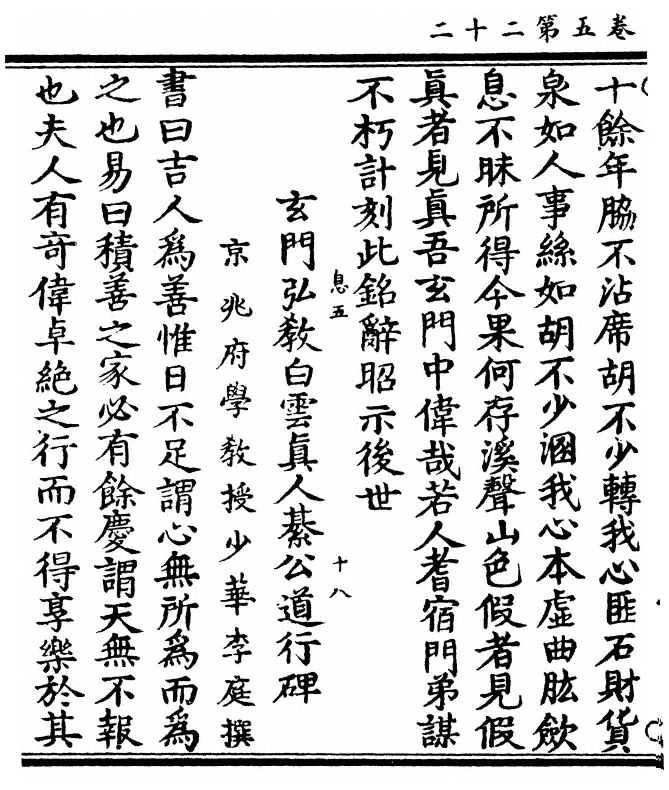 卷五第二十二
十餘年脇不沾席胡不少轉我心匪石財貨
泉如人事絲如胡不少溷我心本虛曲肱飲
息不昧所得今果何存溪聲山色假者見假
眞者見眞吾玄門中偉哉若人耆宿門弟謀
不朽計刻此銘辭昭示後世
息五
十八
玄門弘敎白雲眞人綦公道行碑
京兆府學敎授少華李庭撰
書曰吉人爲善惟日不足謂心無所爲而爲
之也易曰積善之家必有餘慶謂天無不報
也夫人有奇偉卓絕之行而不得享樂於其